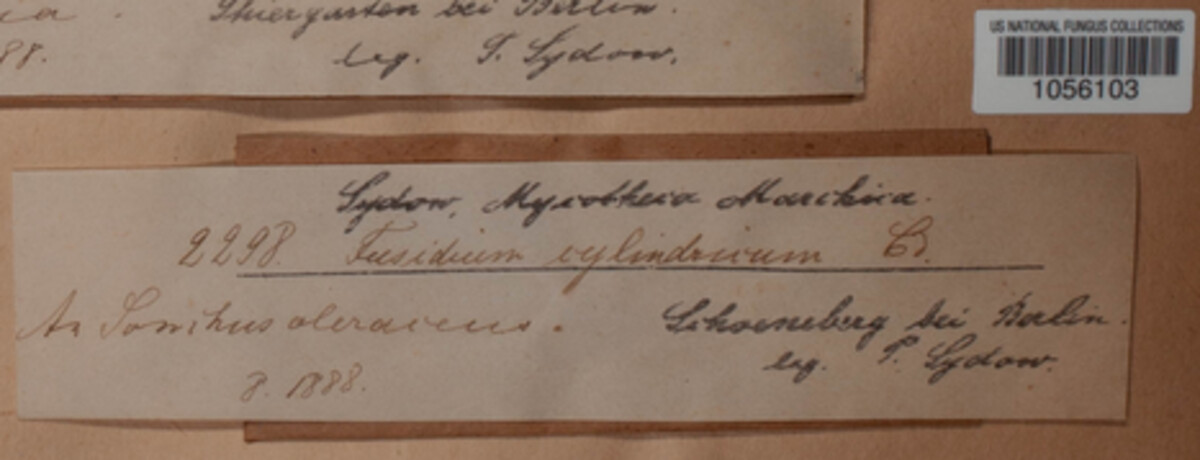 Thiergarten bei Berlin.
88. leg. P. Sydow.
US NATIONAL FUNGUS COLLECTIONS
1056103
Sydow, Mycotheca Marchica.
2298. Fusidium cylindricum
An Sonchus oleraceus.
Schoeneberg bei Berlin.
8. 1888.
leg. P. Sydow.